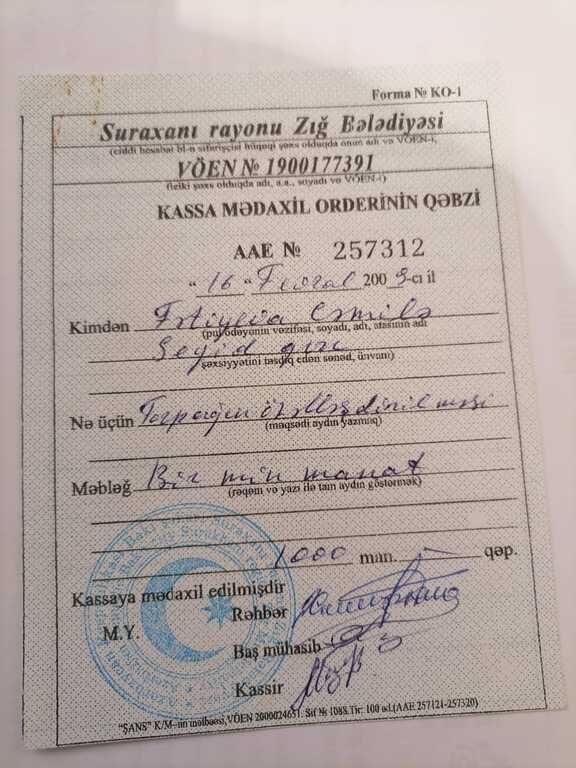 Forma № KO-1
Suraxanı rayonu Zığ Bələdiyəsi
(ciddi hesabat bl-n sifarişçisi hüquqi şəxs olduqda onun adı və VÖEN-i,
VÖEN № 1900177391
fiziki şəxs olduqda adı, a.a., soyadı və VÖEN-i)
KASSA MƏDAXİL ORDERİNİN QƏBZİ
AAE № 257312
"16" Fevral 2009-cı il
Kimdən
(pul ödəyənin vəzifəsi, soyadı, adı, atasının adı
Seyid qızı
şəxsiyyətini təsdiq edən sənəd, ünvanı)
Nə üçün Torpağın özəlləşdirilməsi
(məqsədi aydın yazmaq)
Məbləğ Bir min manat
(rəqəm və yazı ilə tam aydın göstərmək)
1000 man. — qəp.
Kassaya mədaxil edilmişdir
Rəhbər
M.Y.
Baş mühasib
Kassir
"ŞANS" K/M-nin mətbəəsi, VÖEN 2000024651. Sif № 1088. Tir: 100 əd. (AAE 257121-257320)